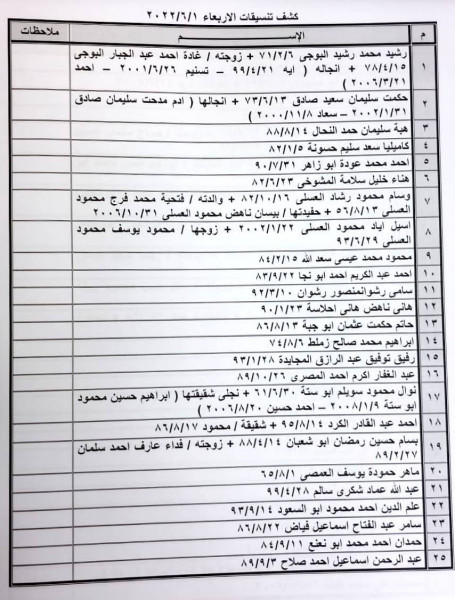 كشف تنسيقات الاربعاء ٢٠٢٢/٦/١
م الإســـم ملاحظات
١ رشيد محمد رشيد البوجى ٧١/٢/٦ + زوجته / غادة احمد عبد الجبار البوجى
٧٨/٤/١٥ + انجاله ( ايه ٩٩/٤/٢١ – تسنيم ٢٠٠١/٦/٢٦ – احمد
٢٠٠٦/٣/٢١ )
٢ حكمت سليمان سعيد صادق ٧٣/٦/١٣ + انجالها ( ادم مدحت سليمان صادق
٢٠٠٢/١/٣١ – سعاد ٢٠٠٠/١١/٨ )
٣ هبة سليمان حمد النحال ٨٨/٨/١٤
٤ كاميليا سعد سليم حسونة ٨٢/١/٥
٥ احمد محمد عودة ابو زاهر ٩٠/٧/٣١
٦ هناء خليل سلامة المشوخى ٨٢/٦/٢٣
٧ وسام محمود رشاد العسلى ٨٢/١٠/١٦ + والدته / فتحية محمد فرج محمود
العسلى ٥٦/٨/١٣ + حفيدتها / بيسان ناهض محمود العسلى ٢٠٠٦/١٠/٣١
٨ اسيل اياد محمود العسلى ٢٠٠٢/١/٢٢ + زوجها / محمود يوسف محمود
العسلى ٩٣/٦/٢٩
٩ محمود محمد عيسى سعد الله ٨٤/٢/١٥
١٠ احمد عبد الكريم احمد ابو نجا ٨٣/٩/٢٢
١١ سامى رشوانمنصور رشوان ٩٢/٣/١٠
١٢ هانى ناهض هانى احلاسة ٩٠/١/٢٣
١٣ حاتم حكمت عثمان ابو جبة ٨٦/٨/١٣
١٤ ابراهيم محمد صالح زملط ٧٤/٨/٦
١٥ رفيق توفيق عبد الرازق المجايدة ٩٣/١/٢٨
١٦ عبد الغفار اكرم احمد المصرى ٨٩/١٠/٢٦
١٧ نوال محمود سويلم ابو ستة ٦١/٦/٣٠ + نجلى شقيقتها ( ابراهيم حسين محمود
ابو ستة ٢٠٠٨/١/٩ – احمد حسين ٢٠٠٦/٨/٢٠ )
١٨ احمد عبد القادر الكرد ٩٥/٨/١٤ + شقيقة / محمود ٨٦/٨/١٧
١٩ بسام حسين رمضان ابو شعبان ٨٨/٤/١٤ + زوجته / فداء عارف احمد سلمان
٨٩/٢/٢٧
٢٠ ماهر حمودة يوسف العمصى ٦٥/٨/١
٢١ عبد الله عماد شكرى سالم ٩٩/٤/٢٨
٢٢ علم الدين احمد محمود ابو السعود ٩٣/٩/١٤
٢٣ سامر عبد الفتاح اسماعيل فياض ٨٦/٨/٢٢
٢٤ حمدان احمد محمد ابو نعنع ٨٤/٩/١١
٢٥ عبد الرحمن اسماعيل احمد صلاح ٨٩/٩/٣